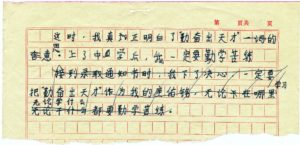 第 页共 页
这时,我真正明白了"勤奋出天才"一语的
含意。上了中医学后,我一定要勤学苦练
接到录取通知书时,我下了决心,一定要
学习
把勤奋出天才作为我的座佑铭,无论干在哪里
无论学什么
无论干什么都要勤学苦练。